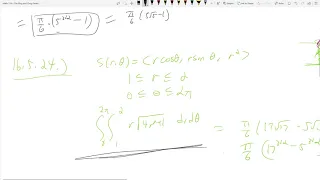 = π/6 · (5^{3/2} - 1) = π/6 (5√5 - 1)
16.5.24.) S(r,θ) = ⟨r cos θ, r sin θ, r²⟩
1 ≤ r ≤ 2
0 ≤ θ ≤ 2π
∫_0^{2π} ∫_1^2 r√(4r²+1) dr dθ = π/6 (17√17 - 5√5
π/6 (17^{3/2} - 5^{3/2}